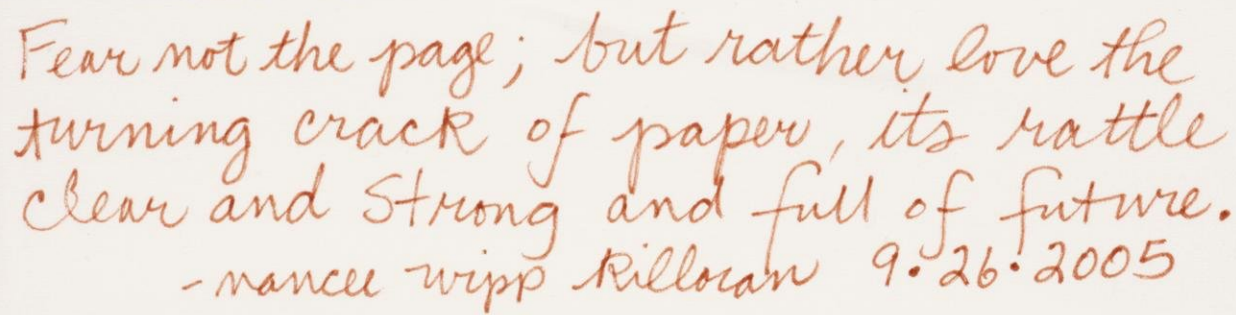 Fear not the page; but rather love the
turning crack of paper, its rattle
clear and strong and full of future.
-nancee wipp Killoran 9•26•2005